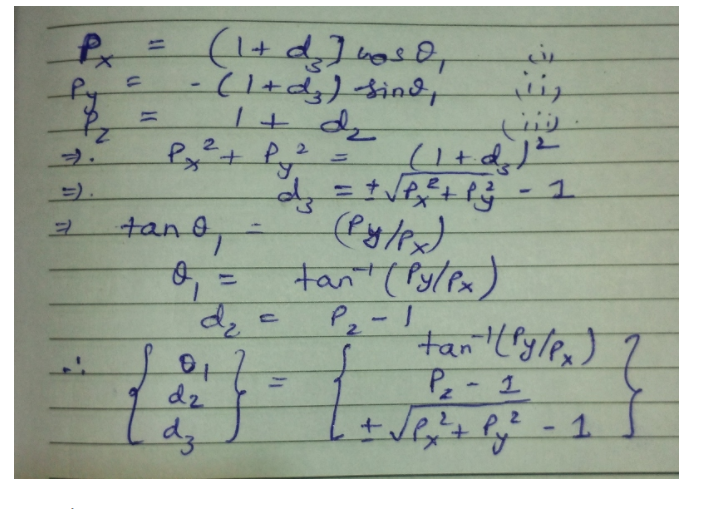 Px = (1 + d3] cos θ1 (i)
Py = - (1 + d3) sinθ1 (ii)
Pz = 1 + d2 (iii)
⇒. Px² + Py² = (1 + d3)²
⇒. d3 = ±√(Px² + Py²) - 1
⇒ tan θ1 = (Py/Px)
θ1 = tan⁻¹ (Py/Px)
d2 = Pz - 1
∴ {θ1 d2 d3} = {tan⁻¹(Py/Px) Pz - 1 ±√(Px² + Py²) - 1}